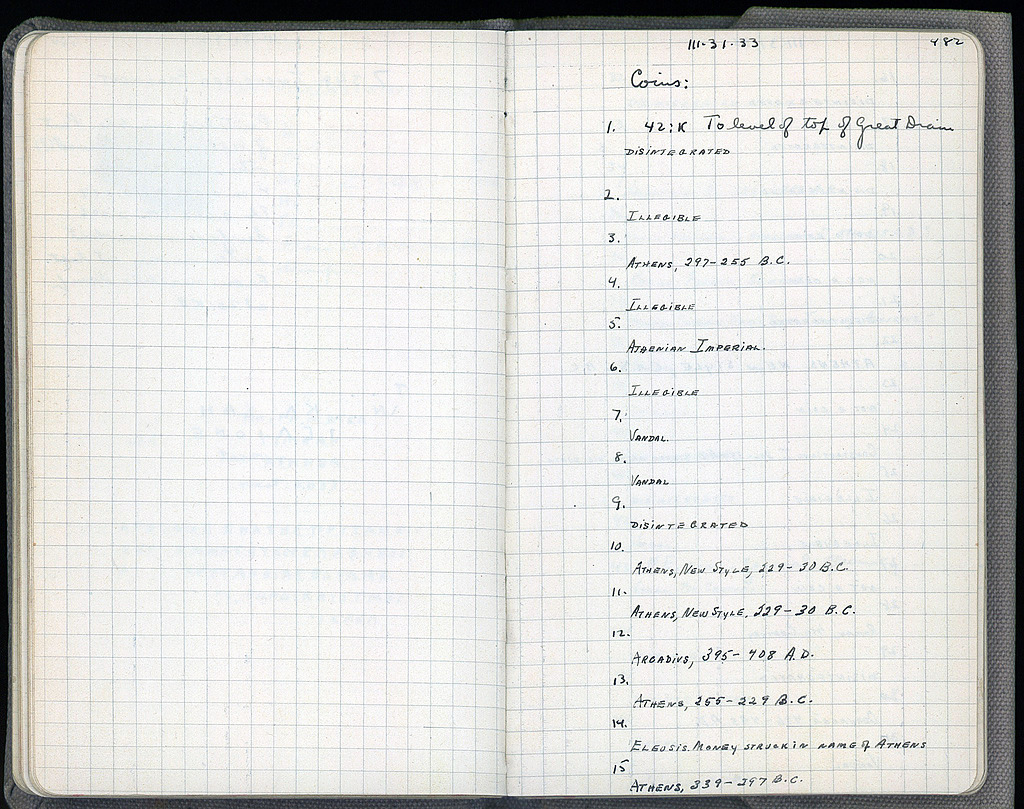 III-31-33
482
Coins:
1. 42:K To level of top of Great Drain
DISINTEGRATED
2.
ILLEGIBLE
3.
ATHENS, 297-255 B.C.
4.
ILLEGIBLE
5.
ATHENIAN IMPERIAL.
6.
ILLEGIBLE
7.
VANDAL.
8.
VANDAL
9.
DISINTEGRATED
10.
ATHENS, NEW STYLE, 229-30 B.C.
11.
ATHENS, NEW STYLE, 229-30 B.C.
12.
ARCADIUS, 395-408 A.D.
13.
ATHENS, 255-229 B.C.
14.
ELEUSIS. MONEY STRUCK IN NAME of ATHENS
15
ATHENS, 339-297 B.C.